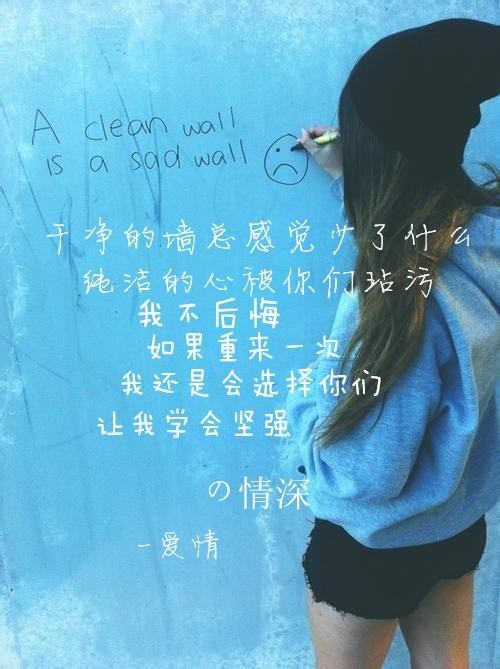 A clean wall
is a sad wall
干净的墙总感觉少了什么
纯洁的心被你们玷污
我不后悔
如果重来一次
我还是会选择你们
让我学会坚强
の情深
-爱情